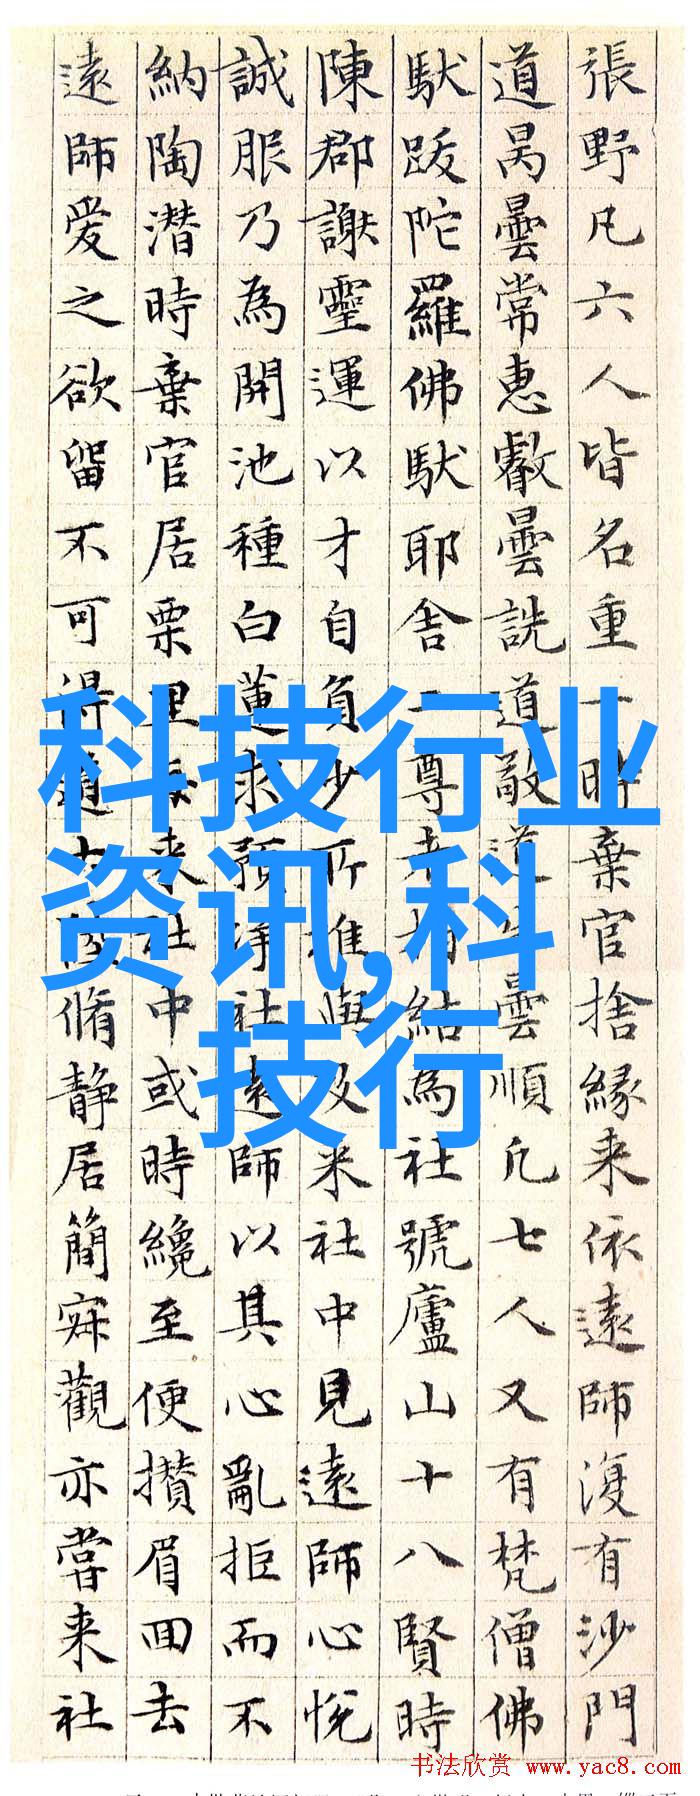 張野凡六人皆名重一時棄官捨緣来依遠師復有沙門
道昺曇常惠叡曇詵道敬道生曇順凡七人又有梵僧佛
馱跋陀羅佛馱耶舍二尊者相結為社號廬山十八賢時
陳郡謝靈運以才自負少所推與及来社中見遠師心悅
誠服乃為開池種白蓮求預淨社遠師以其心亂拒而不
納陶潜時棄官居栗里每来社中或時纔至便攅眉回去
遠師爱之欲留不可得道士陸脩静居簡寂觀亦嘗来社
科技行业
资讯,科
技行
书法欣赏 www.yac8.com